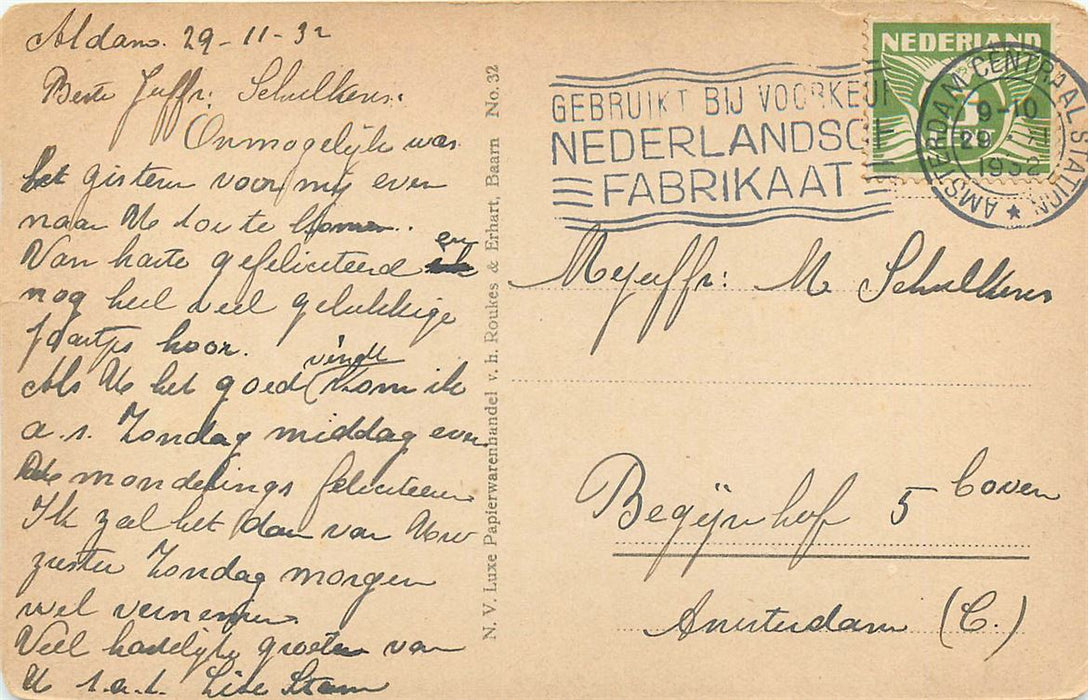 Aldam. 29-11-32
Beste Juffr: Schulkens.
Onmogelijk was
het gisteren voor mij even
naar U toe te komen.
Van harte gefeliciteerd en
nog heel veel gelukkige
jaartjes hoor.
Als U het goed vindt kom ik
a.s. Zondag middag even
U mondelings feliciteeren
Ik zal het dan van Uw
zuster Zondag morgen
wel vernemen
Veel hartelijke groeten van
U t.a.t. Lise Stam
N. V. Luxe Papierwarenhandel v. h. Roukes & Erhart, Baarn No. 32
GEBRUIKT BIJ VOORKEUR
NEDERLANDSCH
FABRIKAAT
NEDERLAND
AMSTERDAM CENTRAAL STATION
9-10
29
1932
Mejuffr: M Schulkens
Begijnhof 5 boven
Amsterdam (C.)